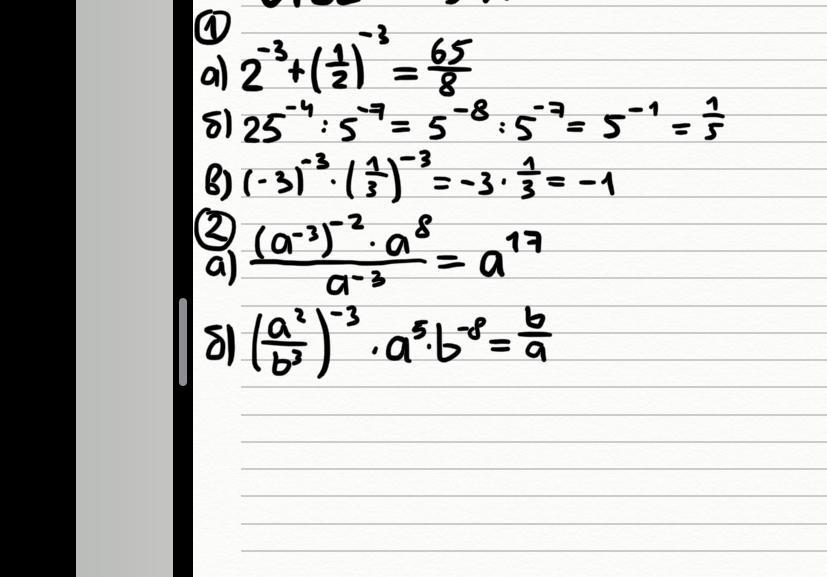 ①
а) 2⁻³+(1/2)⁻³ = 65/8
б) 25⁻⁴ : 5⁻⁷ = 5⁻⁸ : 5⁻⁷ = 5⁻¹ = 1/5
в) (-3)⁻³ · (1/3)⁻³ = -3 · 1/3 = -1
②
а) (a⁻³)⁻² · a⁸ / a⁻³ = a¹⁷
б) (a²/b³)⁻³ · a⁵ · b⁻⁸ = b/a